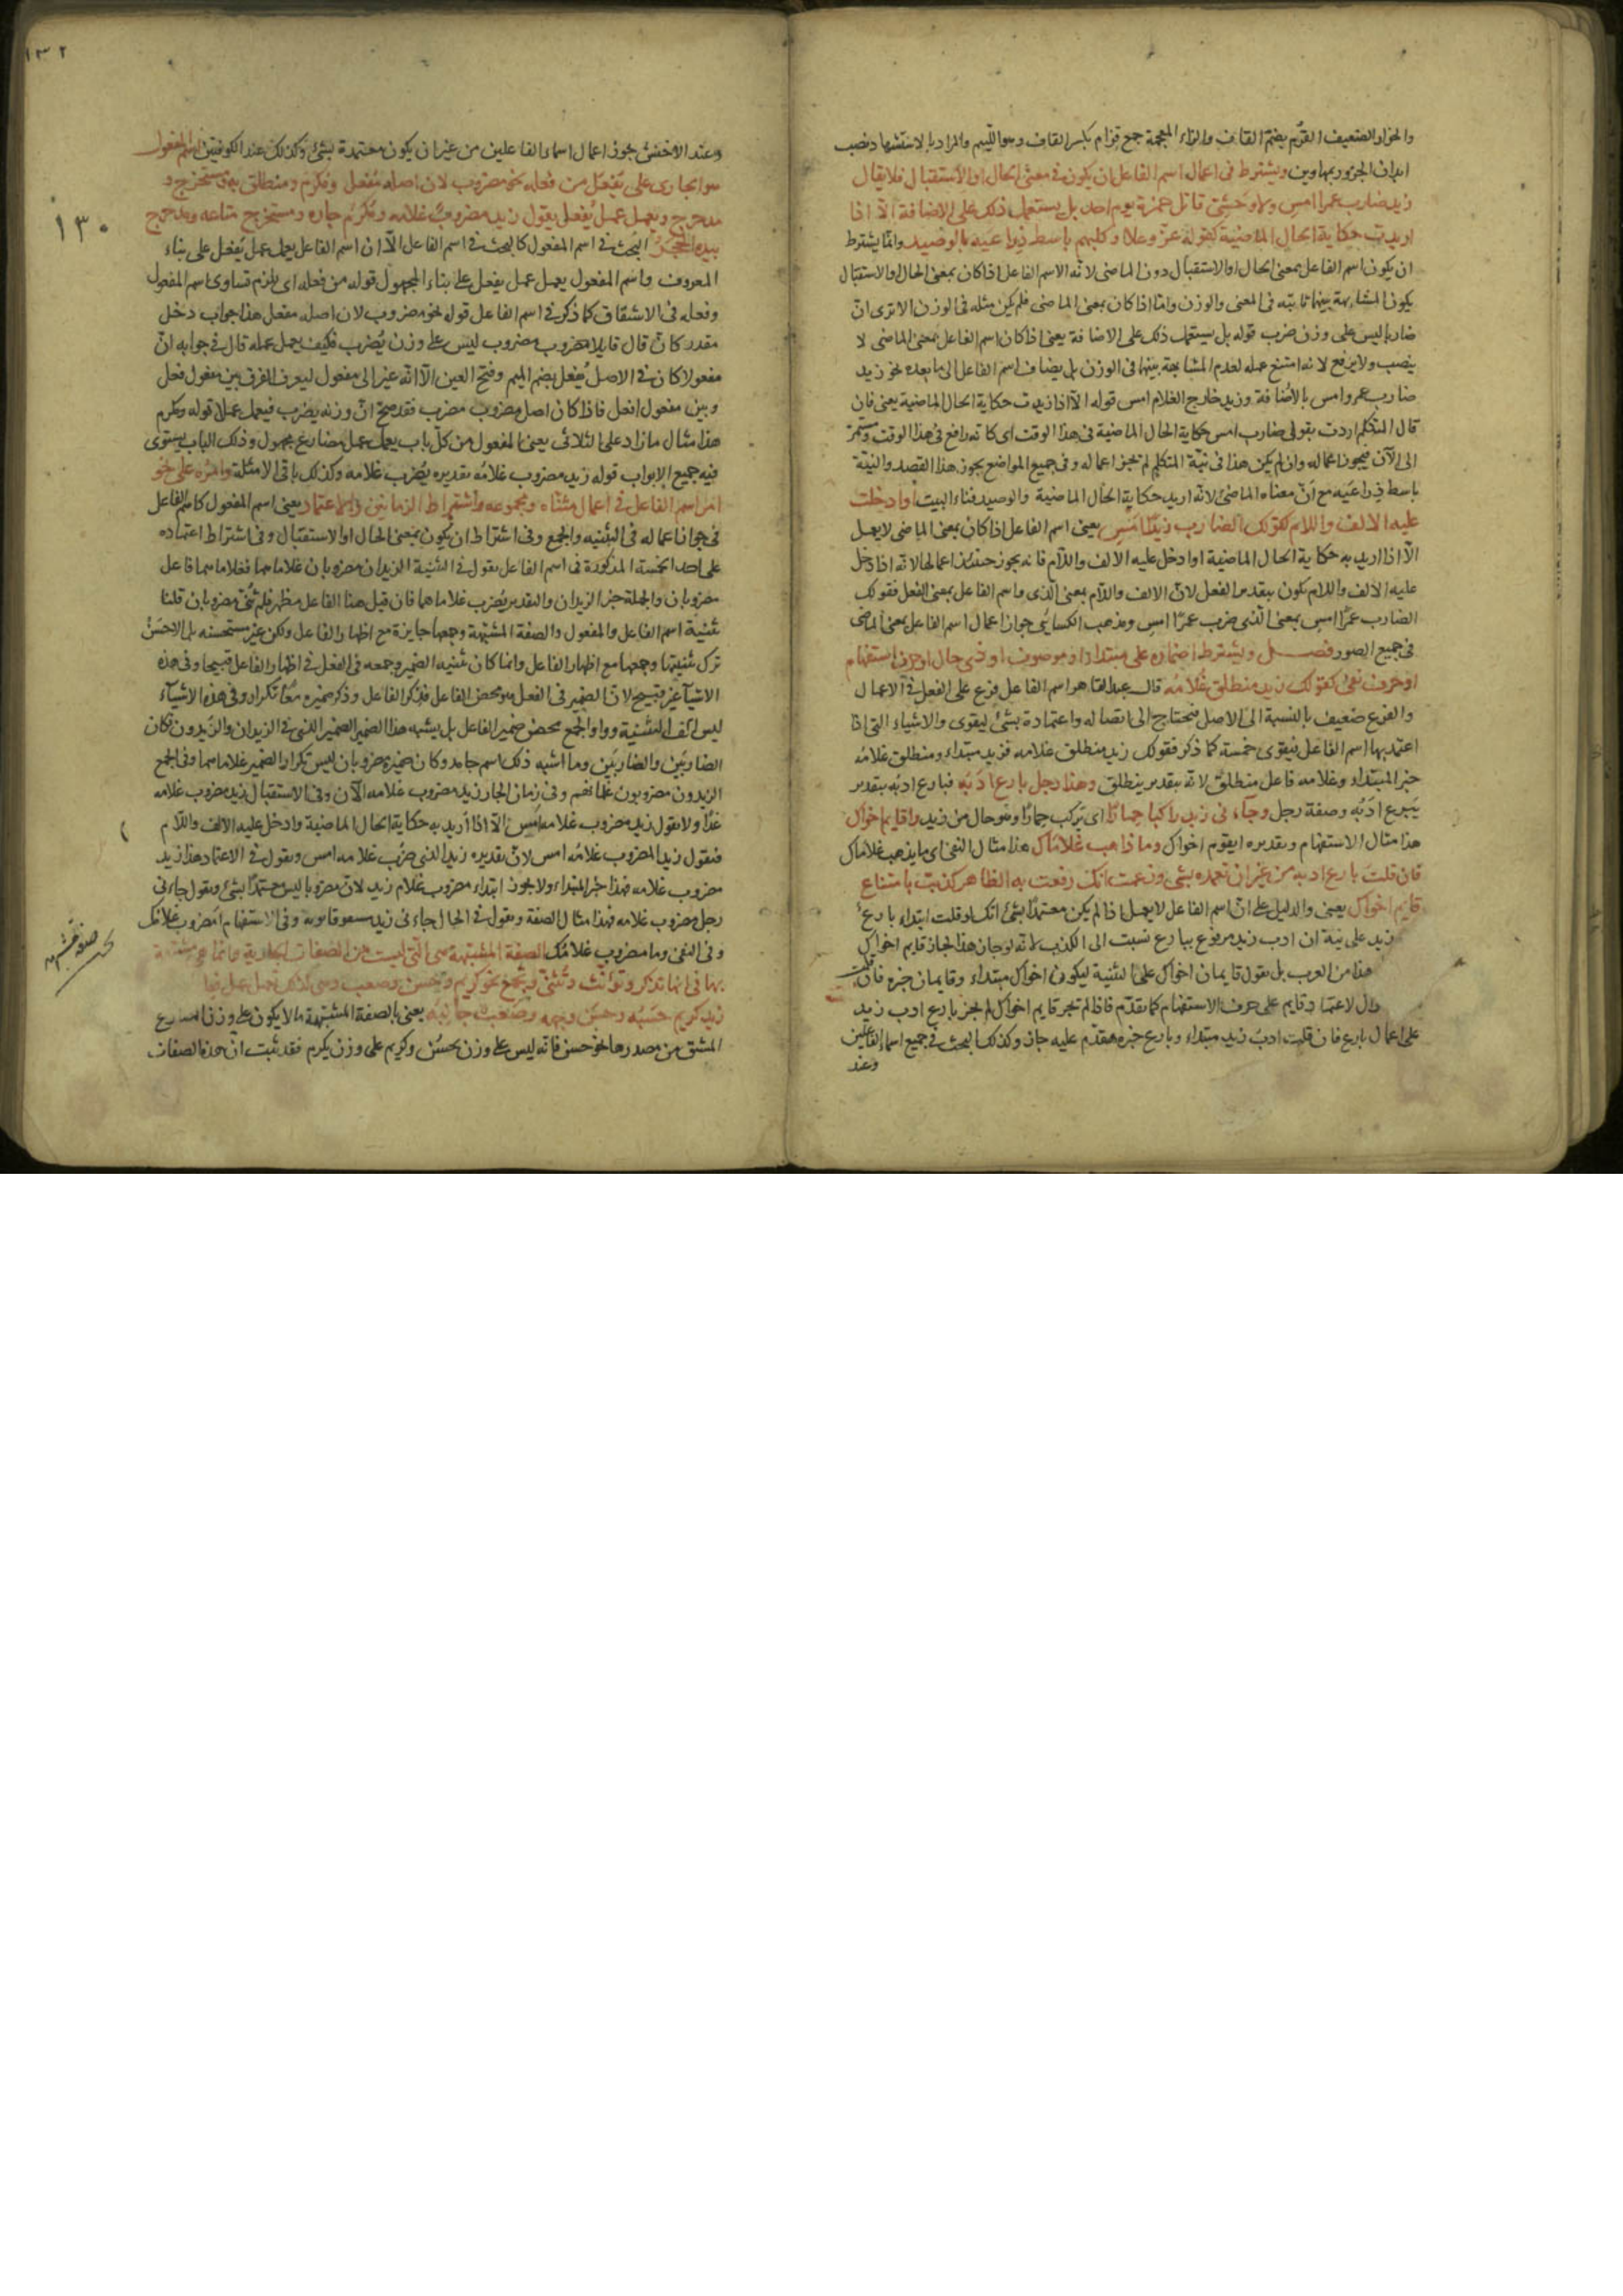 والخوار الضعيف القزم بضم القاف والزاء المعجمة جمع قزام بكسر القاف وهو اللئيم والمراد بالاستشهاد نصب
ابدان الجزور بمهاوين ويشترط فى اعمال اسم الفاعل ان يكون فى معنى الحال او الاستقبال فلا يقال
زيد ضارب عمرا امس ولا وحشى قاتل حمزة يوم احد بل يستعمل ذلك على الاضافة الّا اذا
اريدت حكاية الحال الماضية كقوله عز وعلا وكلبهم باسط ذراعيه بالوصيد وانما يشترط
ان يكون اسم الفاعل بمعنى الحال او الاستقبال دون الماضى لانّه الاسم الفاعل اذا كان بمعنى الحال او الاستقبال
يكون المشابهة بينهما ثابته فى المعنى والوزن وامّا اذا كان بمعنى الماضى فلم يكن مثله فى الوزن الا ترى انّ
ضاربا ليس على وزن ضرب قوله بل يستعمل ذلك على الاضافة يعنى اذا كان اسم الفاعل بمعنى الماضى لا
ينصب ولا يرفع لانه امتنع عمله لعدم المشابهة بينهما فى الوزن بل يضاف اسم الفاعل الى ما بعده نحو زيد
ضارب عمرو امس بالاضافة وزيد خارج الغلام امس قوله الّا اذا اريدت حكاية الحال الماضية يعنى فان
قال المتكلم اردت بقولى ضارب امس حكاية الحال الماضية فى هذا الوقت اى كانه رافع فى هذا الوقت ومستمرّ
الى الآن فيجوز اعماله وان لم يكن هذا فى نيّة المتكلم لم يجز اعماله وفى جميع المواضع يجوز هذا القصد والنيّة
باسط ذراعيه مع انّ معناه الماضى لانّه اريد حكاية الحال الماضية والوصيد فناء البيت او ادخلت
عليه الالف واللام كقولك الضارب زيدًا امس يعنى اسم الفاعل اذا كان بمعنى الماضى لا يعمل
الّا اذا اريد به حكاية الحال الماضية او ادخل عليه الالف واللام فانه يجوز حينئذ اعمالها لانه اذا دخل
عليه الالف واللام يكون بتقدير الفعل لانّ الالف واللام بمعنى الذى واسم الفاعل بمعنى الفعل فقولك
الضارب عمرًا امس بمعنى الّذى ضرب عمرًا امس ومذهب الكسائى جواز اعمال اسم الفاعل بمعنى الماضى
فى جميع الصور فصل ويشترط اعتماده على مبتداء او موصوف او ذى حال او حرف استفهام
او حرف نفى كقولك زيد منطلق غلامه قال عبد القاهر اسم الفاعل فرع على الفعل فى الاعمال
والفرع ضعيف بالنسبة الى الاصل فيحتاج الى اتصاله واعتماده بشئ ليقوى والاشياء التى اذا
اعتمد بها اسم الفاعل فيقوى خمسة كما ذكر فقولك زيد منطلق غلامه فزيد مبتداء ومنطلق غلامه
خبر المبتداء وغلامه فاعل منطلق لانه بتقدير ينطلق وهذا رجل بارع ادبه فبارع ادبه بتقدير
يبرع ادبه وصفة رجل وجاءنى زيد راكبا حمارًا اى يركب حمارًا وهو حال من زيد واقايم اخواك
هذا مثال الاستفهام وتقديره ايقوم اخواك وما ذاهب غلاماك هذا مثال النفى اى ما يذهب غلاماك
فان قلت بارع ادبه من غير ان تعمده بشئ وزعمت انك رفعت به الظاهر كذبت بامتناع
قايم اخواك يعنى والدليل على انّ اسم الفاعل لا يعمل اذا لم يكن معتمدًا بشئ انك لو قلت ابتداء بارع
زيد على نية ان ادب زيد مرفوع ببارع نسبت الى الكذب لانه لو جاز هذا لجاز قايم اخواك
هذا من العرب بل يقول قايمان اخواك على التثنية ليكون اخواك مبتداء وقايمان خبره فان قلت
دال لاعتماد قايم على حرف الاستفهام كما تقدّم فاذا لم تجر قايم اخواك لم يجز بارع ادب زيد
على اعمال بارع فان قلت ادب زيد مبتداء وبارع خبره مقدّم عليه جاز وكذلك البحث فى جميع اسماء الفاعلين
وعند
١٣٢
وعند الاخفش يجوز اعمال اسماء الفاعلين من غير ان يكون معتمدة بشئ وكذلك عند الكوفيين اسم المفعول
هو الجارى على يفعل من فعله نحو مضروب لان اصله مفعل ومكرم ومنطلق به ومستخرج و
مدحرج ويعمل عمل يفعل يقول زيد مضروب غلامه ومكرم جاره ومستخرج متاعه ومدحرج
١٣٠
بيده الحجر البحث فى اسم المفعول كالبحث فى اسم الفاعل الّا ان اسم الفاعل يعمل عمل يفعل على بناء
المعروف واسم المفعول يعمل عمل يفعل على بناء المجهول قوله من فعله اى يلزم تساوى اسم المفعول
وفعله فى الاشتقاق كما ذكر فى اسم الفاعل قوله نحو مضروب لان اصله مفعل هذا جواب دخل
مقدر كانّ قال قايلا مضروب مضروب ليس على وزن يُضرب فكيف يعمل عمله قال فى جوابه انّ
مفعولا كان فى الاصل مُفعل بضم الميم وفتح العين الّا انّه غير الى مفعول ليعرف الفرق بين مفعول فعل
وبين مفعول افعل فاذا كان اصل مضروب مضرب فقد صحّ انّ وزنه يضرب فيعمل عمله قوله ومكرم
هذا مثال ما زاد على الثلاثى يعنى المفعول من كلّ باب يعمل عمل مضارع مجهول وذلك الباب يستوى
فيه جميع الابواب قوله زيد مضروب غلامه تقديره يُضرب غلامه وكذلك باقى الامثلة وامره على نحو
امر اسم الفاعل فى اعمال مثنّاه ومجموعه واشتراط الزمانين والاعتماد يعنى اسم المفعول كاسم الفاعل
فى جواز اعماله فى التثنيه والجمع وفى اشتراط ان يكون بمعنى الحال او الاستقبال وفى اشتراط اعتماده
على احد الخمسة المذكورة فى اسم الفاعل يقول فى التثنية الزيدان مضروبان غلاماهما فغلاماهما فاعل
مضروبان والجملة خبر الزيدان والتقدير يُضرب غلاماهما فان قيل هذا الفاعل مظهر فلم ثنّى مضروبان قلنا
تثنية اسم الفاعل والمفعول والصفة المشبّهة وجمعها جايزة مع اظهار الفاعل ولكن غير مستحسنه بل الاحسن
ترك تثنيتها وجمعها مع اظهار الفاعل وانما كان تثنيه الضمير وجمعه فى الفعل فى اظهار الفاعل قبيحا وفى هذه
الاشيآ غير قبيح لانّ الضمير فى الفعل هو محض الفاعل فذكر الفاعل وذكر ضميره معًا تكرار وفى هذه الاشيآء
ليس الف التثنية وواو الجمع محض ضمير الفاعل بل يشبه هذا الضمير الضمير الذى فى الزيدان والزيدون فكان
الضاربَين والضاربِين وما اشبه ذلك اسم جامد وكان ضميره مضروبان ليس تكرار الضمير غلاماهما وفى الجمع
الزيدون مضروبون غلمانهم وفى زمان الحال زيد مضروب غلامه الآن وفى الاستقبال زيد مضروب غلامه
غدًا ولا يقول زيد مضروب غلامه امس الّا اذا اريد به حكاية الحال الماضية وادخل عليه الالف واللّام
فيقول زيد المضروب غلامه امس لانّ تقديره زيد الذى ضُرب غلامه امس ويقول فى الاعتماد هذا زيد
مضروب غلامه فهذا خبر المبتداء ولا يجوز ابتداء مضروب غلام زيد لانّ مضروبا ليس معتمدًا بشئ ويقول جاءنى
رجل مضروب غلامه فهذا مثال الصفة ويقول فى الحال جاءنى زيد وفى الاستفهام امضروب غلامك
وفى النفى وما مضروب غلامك الصفة المشبّهة هى الّتى ليست من الصفات الجارية وانما هى مشبّهة
بها فى انّها تذكر وتؤنّث وتثنّى وتجمع نحو كريم وحسن وصعب وهى لذلك تعمل عمل فعلها
زيد كريم حسبه وحسن وجهه وصعب جانبه يعنى بالصفة المشبّهة ما لا يكون على وزن المضارع
المشتق من مصدرها نحو حسن فانّه ليس على وزن يحسُن وكريم على وزن يكرم فقد ثبت انّ هذه الصفات